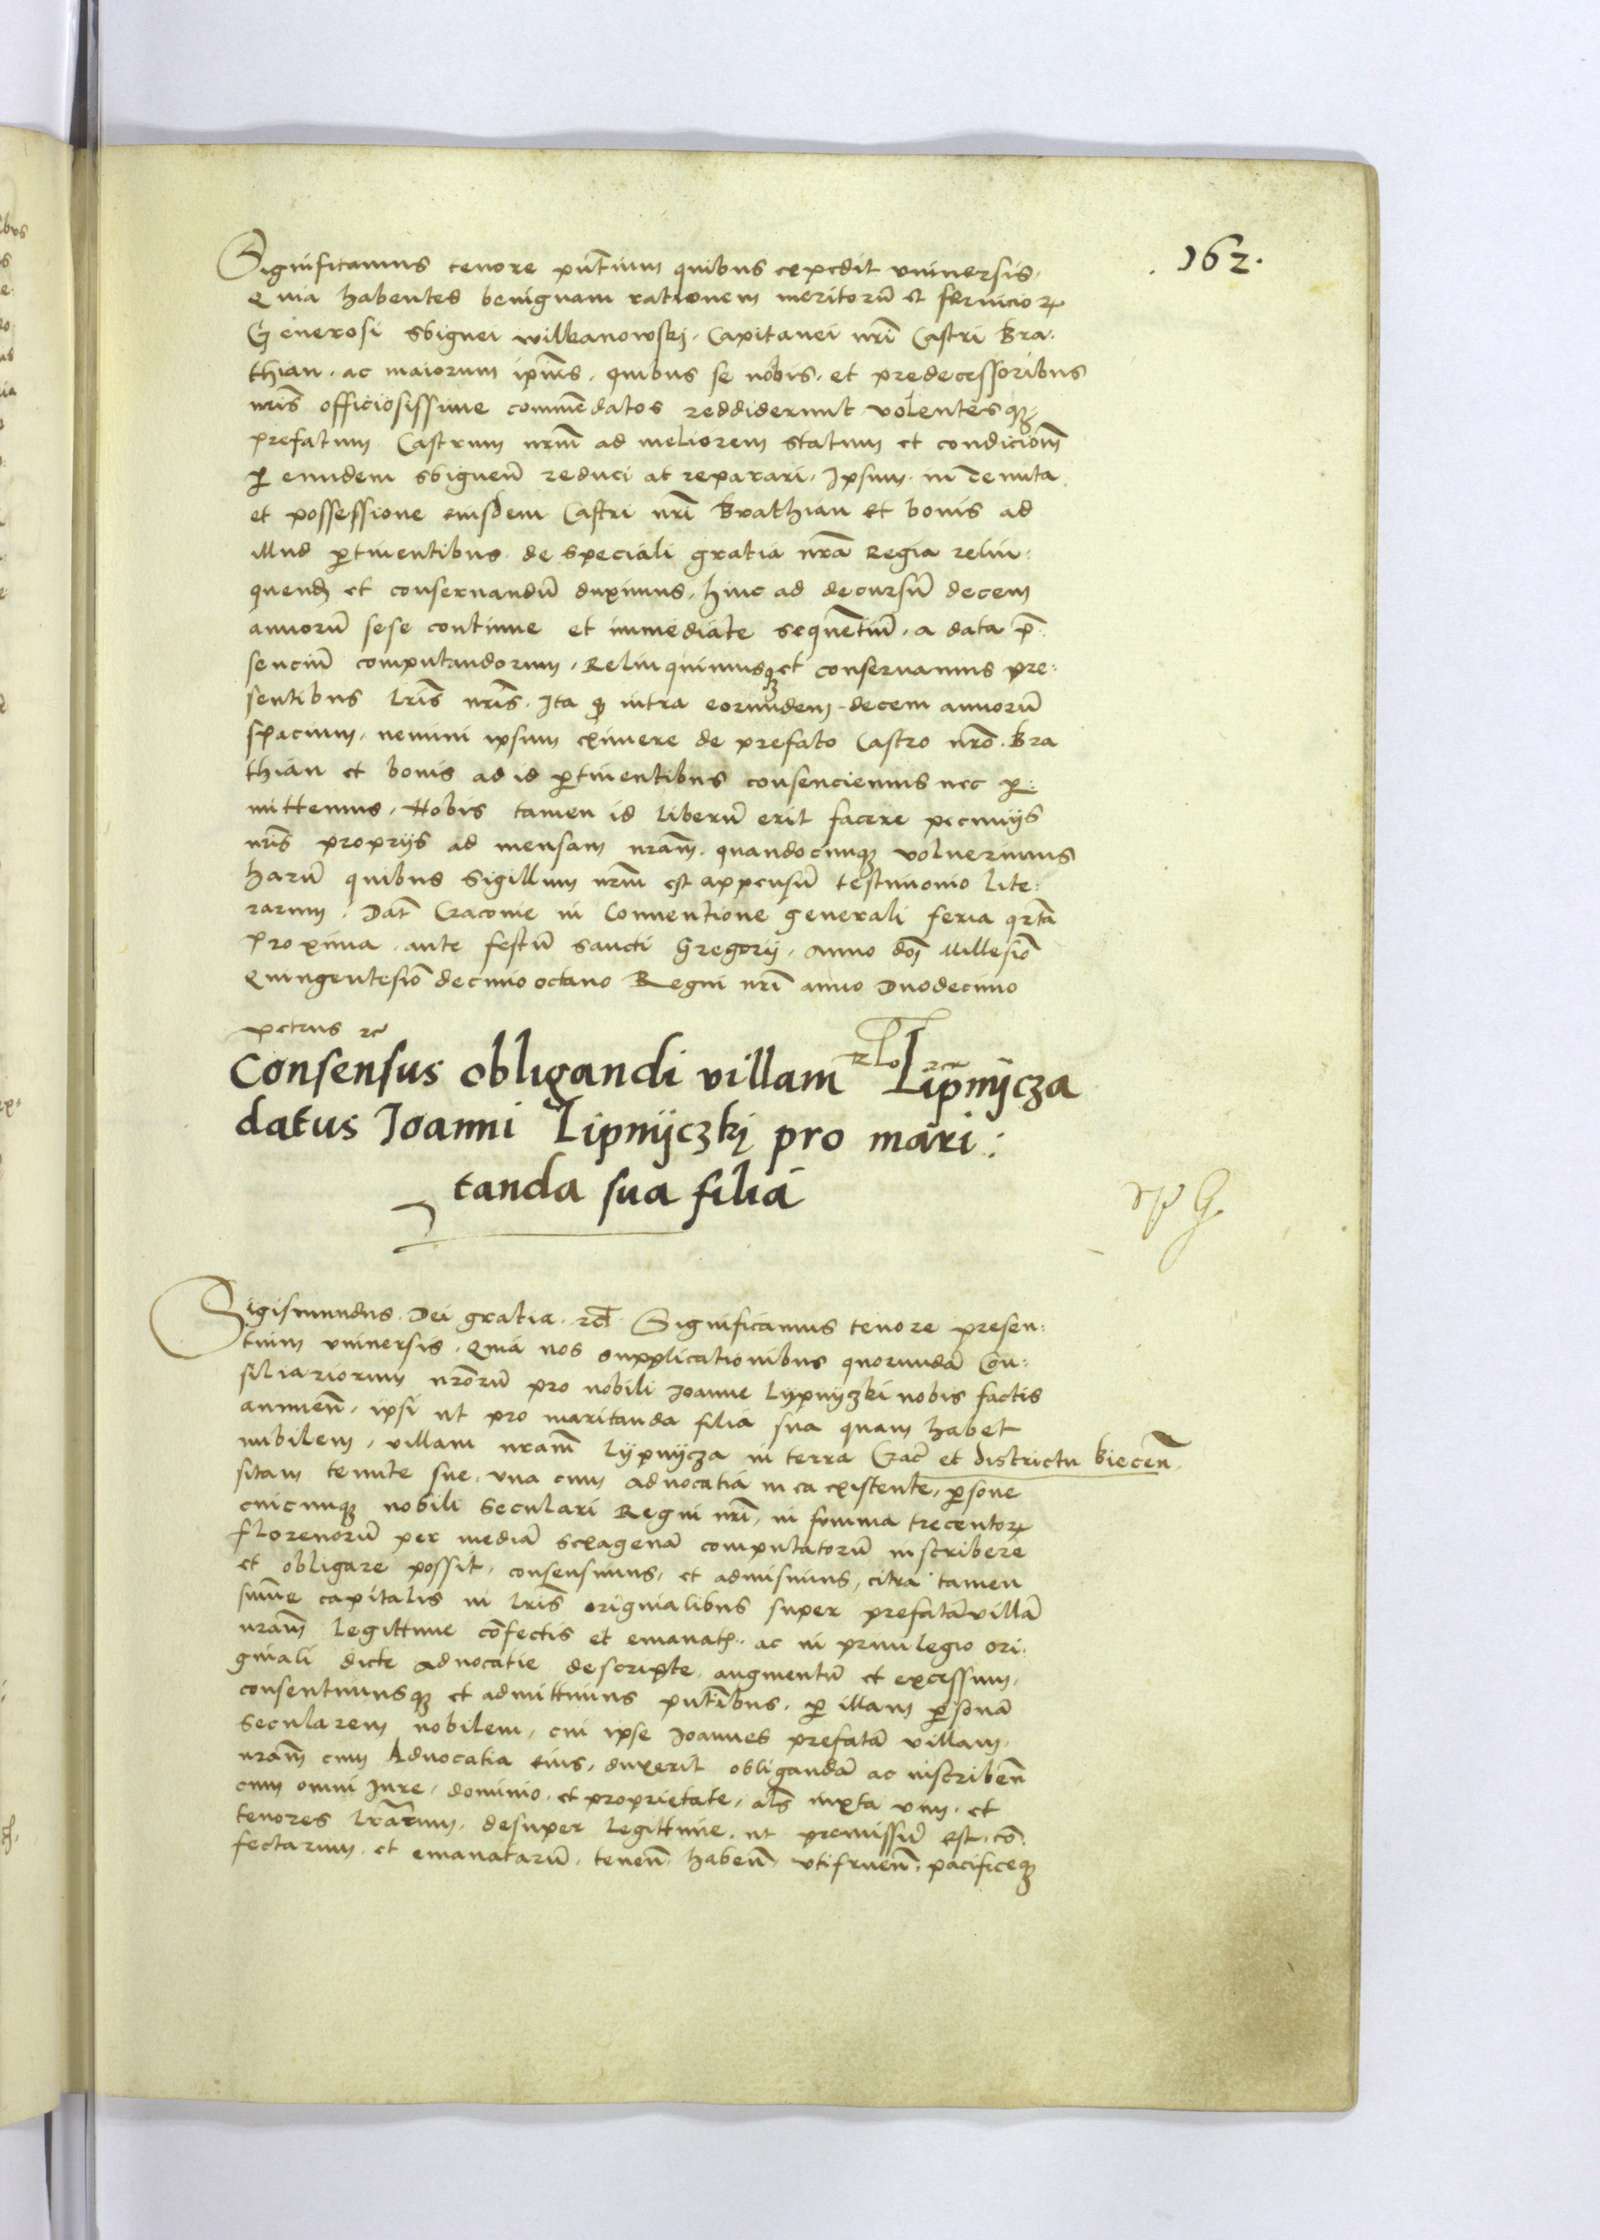 162.
Significamus tenore pñtium quibus expedit vniuersis.
Quia habentes benignam rationem meritorū et seruicioꝝ
Generosi Sbignei wilkanowskj. Capitanei nrī Castri Bra:
thian. ac maiorum ipīus. quibus se nobis. et predecessoribus
nrīs officiosissime commēdatos reddiderunt volentesqꝫ
prefatum Castrum nrm̄ ad meliorem statum et condicioēm
ꝑ eundem Sbigneū reduci ac reparari. Ipsum in tenuta
et possessione eiusdem Castri nrī Brathian et bonis ad
illud ꝑtinentibus de speciali gratia nrā Regia relin:
quenđ et conseruandū duximus. hinc ad decursū decem
annorū sese continue et immediate sequētiū. a data p̄:
senciū computandorum. Relinquimusqꝫ et conseruamus pre:
sentibus lrīs nrīs. Ita qꝫ intra eorundem decem annorū
spacium. nemini ipsum eximere de prefato Castro nrō Bra
thian et bonis ad id ꝑtinentibus consenciemus nec ꝑ:
mittemus. Nobis tamen id liberū erit facere pecunijs
nrīs proprijs ad mensam nram̄. quandocunqꝫ voluerimus
harū quibus Sigillum nrm̄ est appensū testimonio lite:
rarum. Dat̄ Cracouie in Conuentione generali feria qrta
proxima ante festū sancti Gregorij. Anno doī Millesiō
Quingentesiō decimo octauo Regni nrī anno Duodecimo
petrus rc̄
Consensus obligandi villam Lipnijcza
datus Joanni Lipnijczkj pro mari:
tanda sua filia
Sigismundus Dei gratia. rc̄. Significamus tenore presen:
tium vniuersis. Quia nos supplicationibus quorundā Con:
siliariorum nrōrū pro nobili Joanne Lypnyczki nobis factis
annuen̄. ipsi ut pro maritanda filia sua quam habet
nubilem. villam nram̄ Lypnijcza in terra Crac̄ et districtu biecen̄.
sitam tenute sue. vna cum aduocatia in ea existente, ꝑsone
cuicunqꝫ nobili seculari Regni nrī, in summa trecentoꝝ
florenorū per mediā sexagenā computatorū inscribere
et obligare possit, consensimus, et admisimus, citra tamen
sum̄e capitalis in lrīs originalibus super prefatā villā
nram̄ legittime cōfectis et emanatꝭ. ac in priuilegio ori:
ginali dicte aduocatie descripte. augmentū et excessum.
consentimusqꝫ et admittimus pñtibus. ꝑ illam ꝑsonā
secularem nobilem, cui ipse Joannes prefatā villam.
nram̄ cum Aduocatia eius, duxerit obligandā ac inscriben̄
cum omni Jure. dominio. et proprietate, al̄s iuxta vim. et
tenores lrārum. desuper legittime. ut premissū est. cō:
fectarum. et emanatarū. tenen̄. haben̄. vtifruen̄. pacificeqꝫ